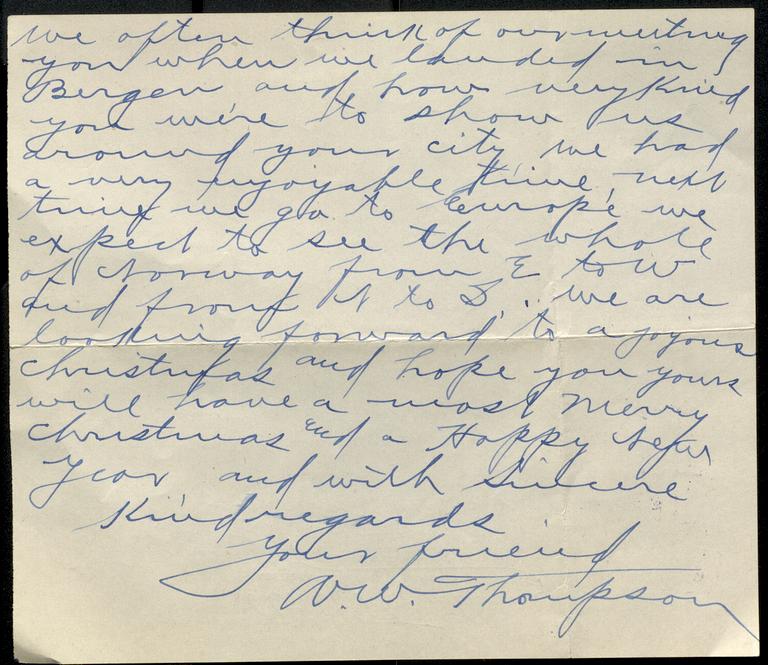 we often think of our meeting
you when we landed in
Bergen and how very kind
you were to show us
around your city we had
a very enjoyable time, next
time we go to Europe we
expect to see the whole
of Norway from E to W
and from N to S. we are
looking forward to a joyous
christmas and hope you yours
will have a most Merry
christmas and a Happy New
Year and with sincere
Kind regards
Your friend
W. Thompson